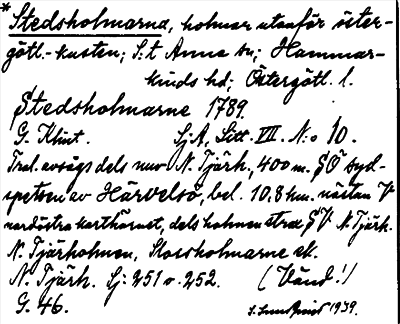 *Stedsholmarna, holmar utanför öster-
götl.-kusten; S:t Anna sn; Hammar-
kinds hd; Östergötl. l.
Stedsholmarne 1789.
G. Klint. Sj.A, Litt. VII. N:o 10.
Trol. avsågs dels nuv. N. Tjärh., 400 m. SÖ syd-
spetsen av Härvelsö, bel. 10,8 km. nästan V
nordöstra karthörnet, dels holmen strax SV N. Tjärh.
N. Tjärholmen, Storsholmarne ek.
N. Tjärh. Sj: 251 o. 252. (Vänd!)
G. 46. 1939.